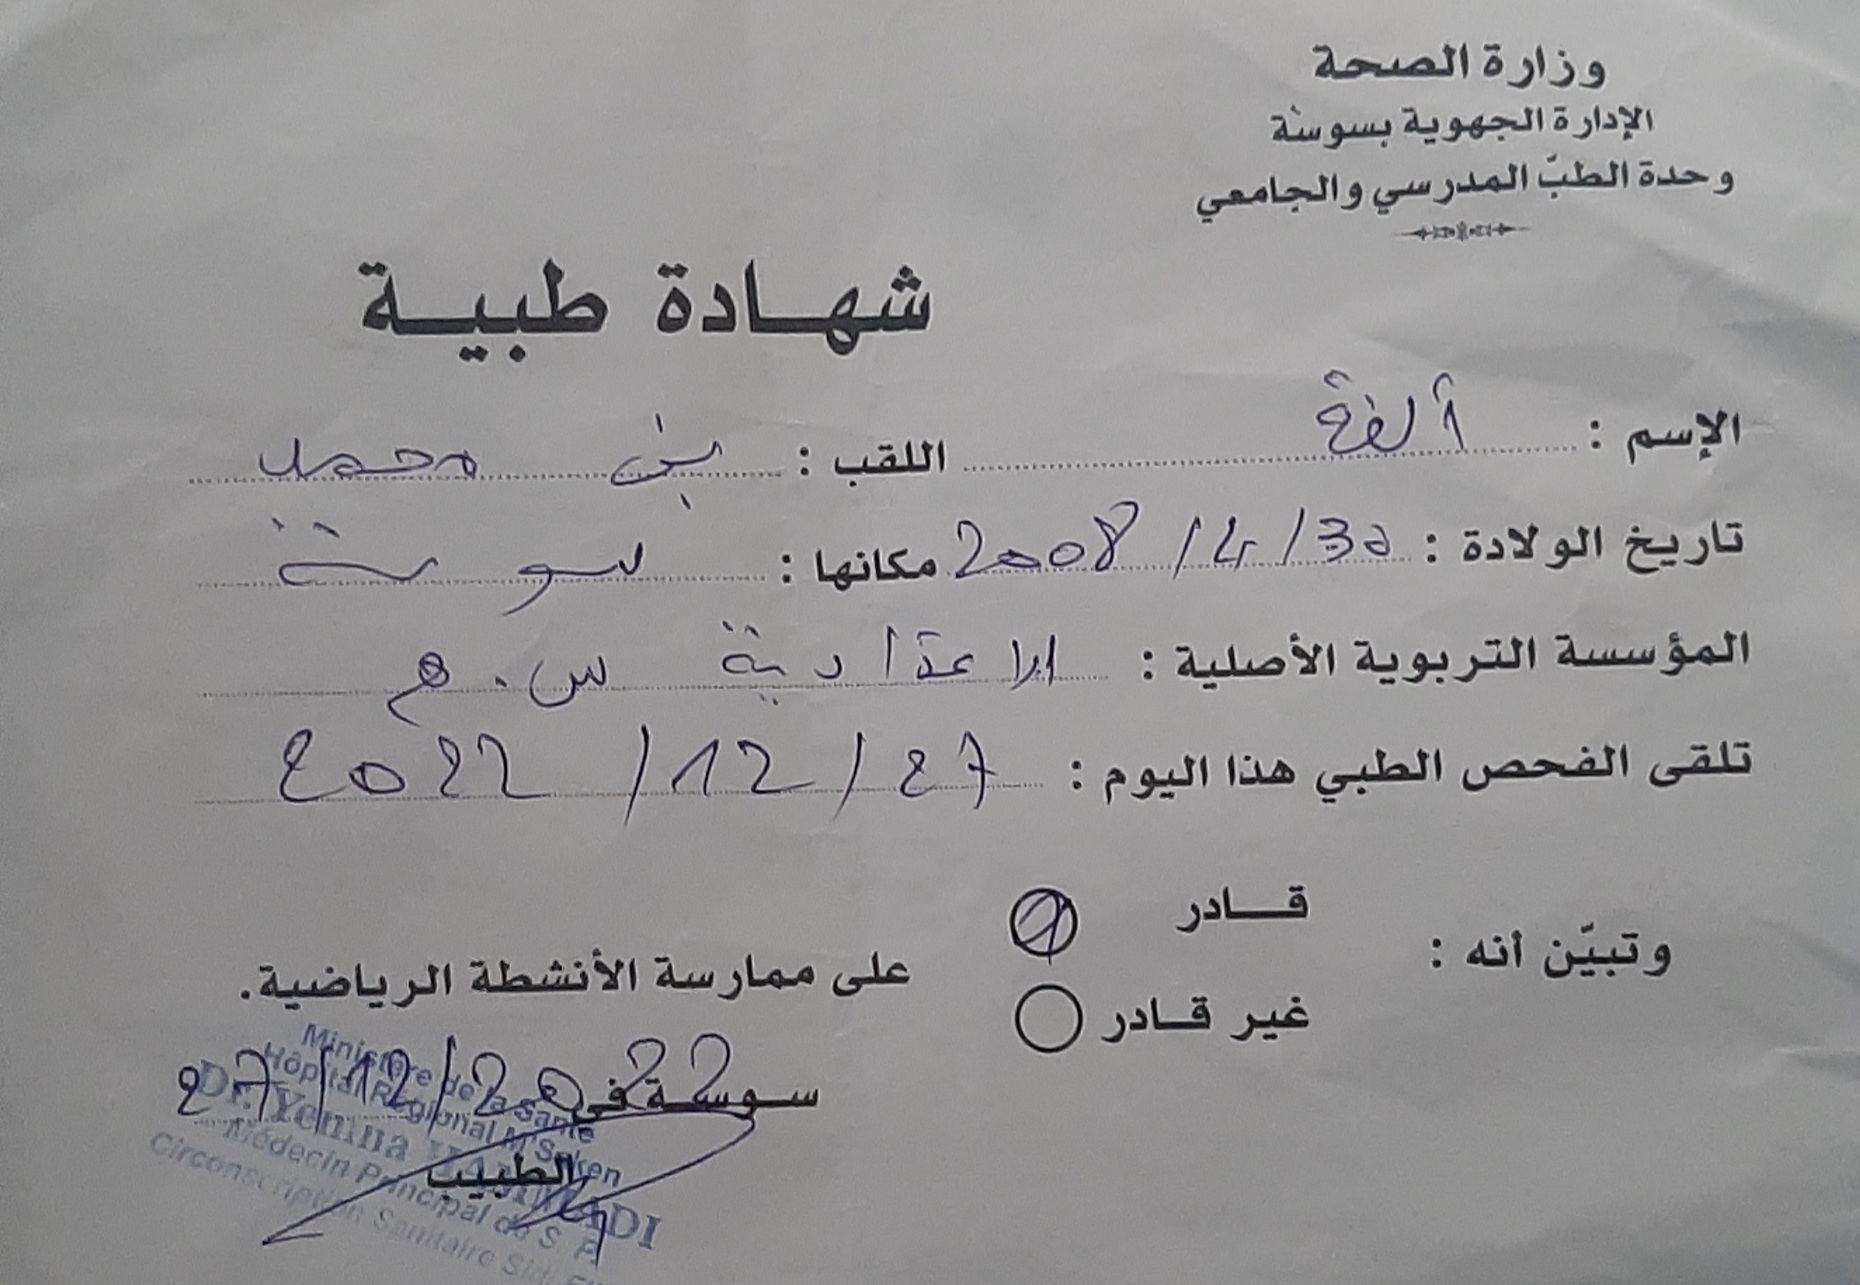 وزارة الصحة
الإدارة الجهوية بسوسة
وحدة الطبّ المدرسي والجامعي
شهادة طبية
الإسم : ألفة اللقب : بن محمد
تاريخ الولادة : 30/4/2008 مكانها : سوسة
المؤسسة التربوية الأصلية : الاعدادية س. هـ
تلقى الفحص الطبي هذا اليوم : 27/12/2022
وتبيّن أنه : قادر
غير قادر
على ممارسة الأنشطة الرياضية.
سوسة في 27/12/2022
الطبيب
Ministère de la Santé
Hôpital Régional M'Saken
Dr. Yemna
Médecin Principal de S. P.
Circonscription Sanitaire Sidi